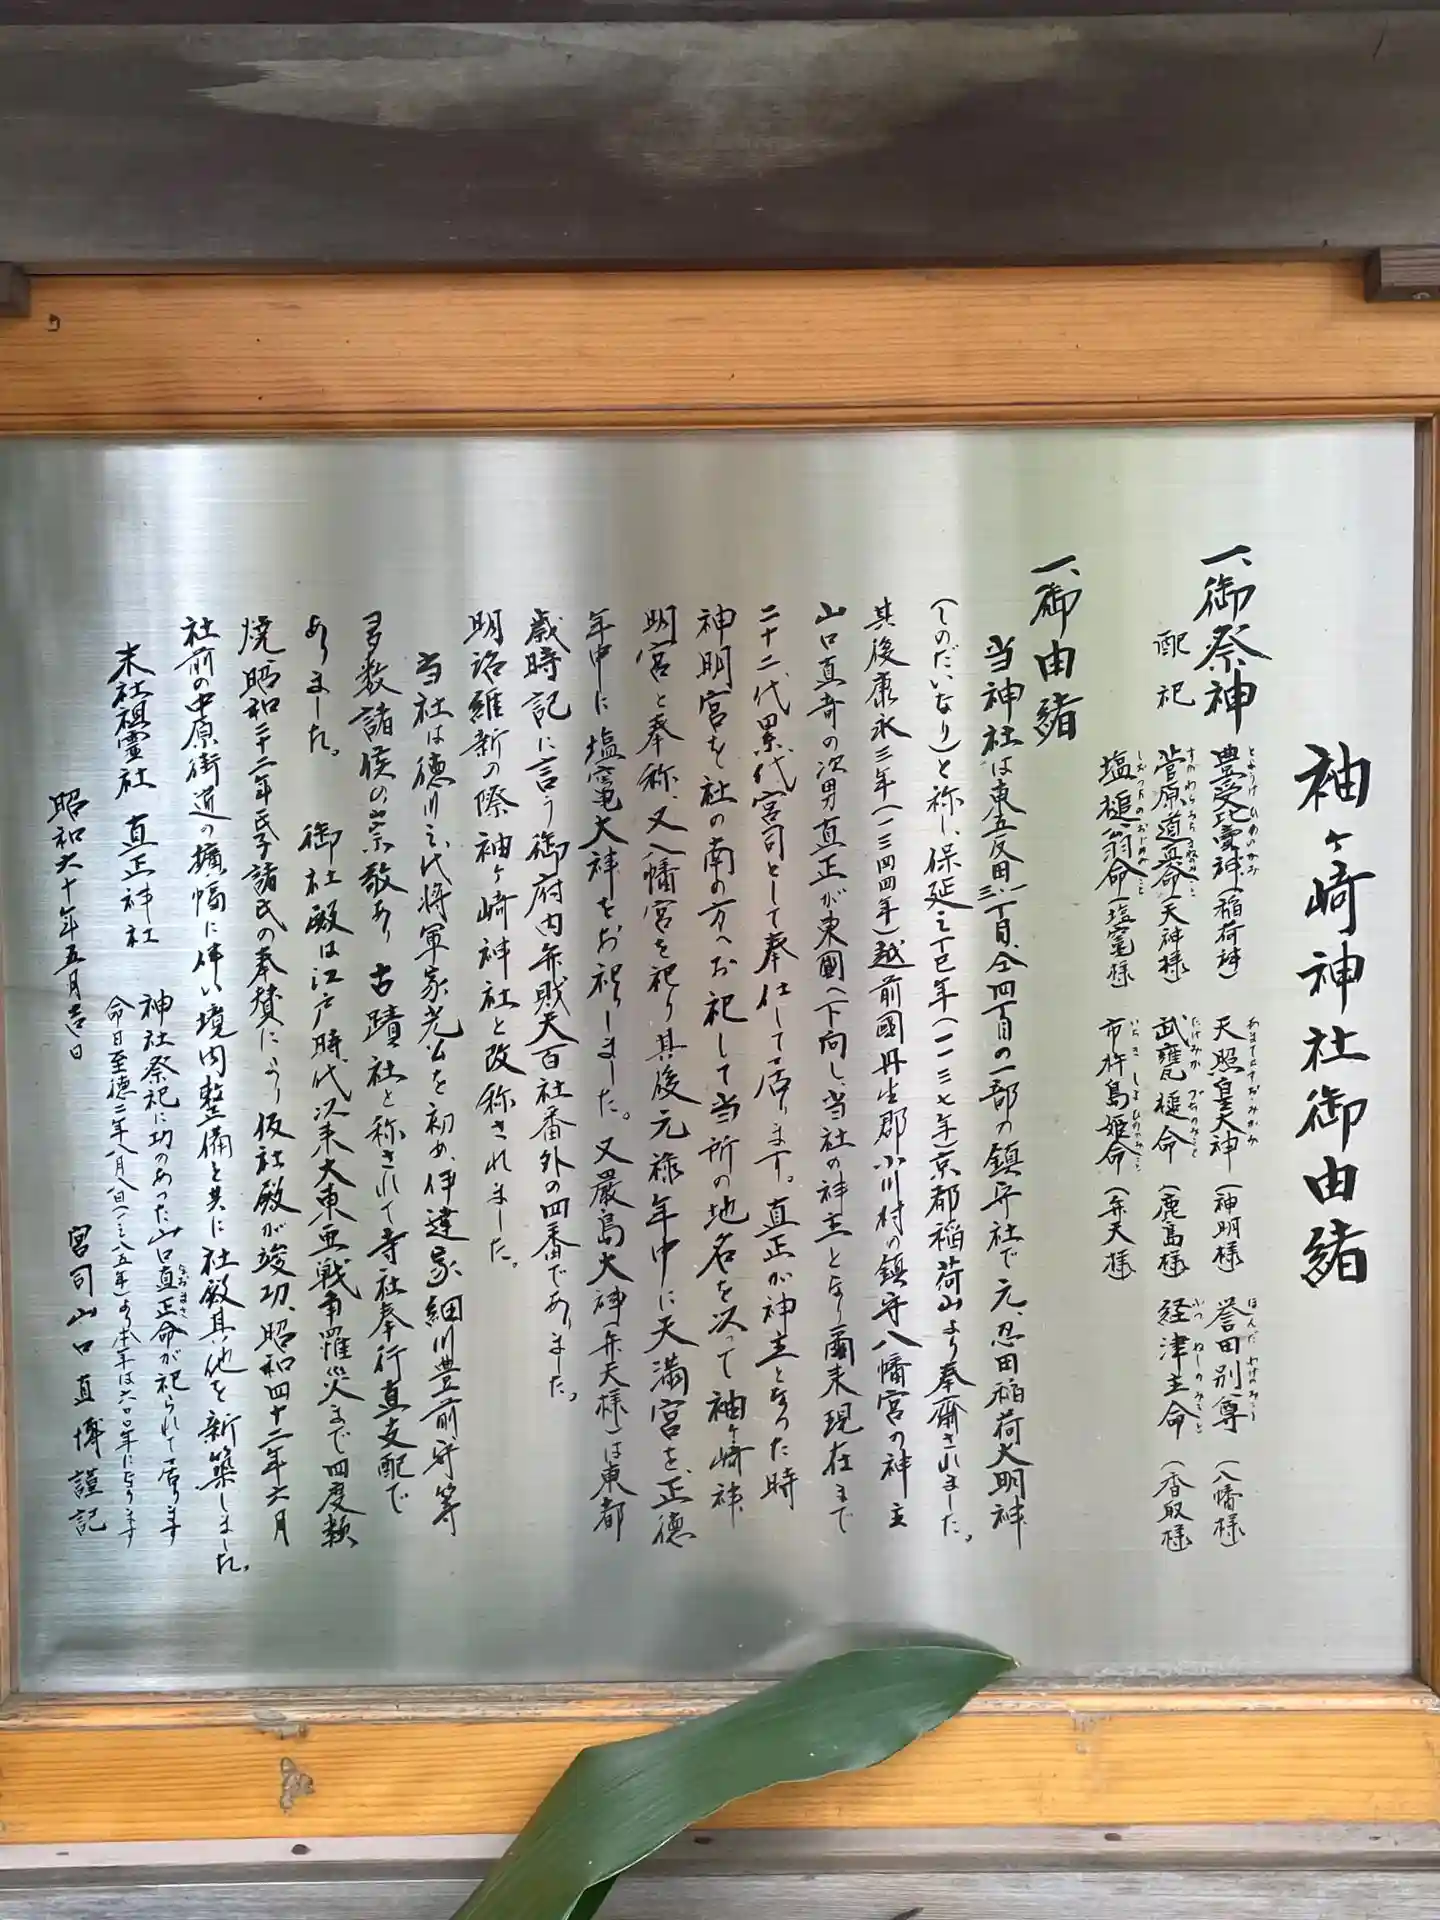 袖ヶ崎神社御由緒
一、御祭神 豊受比賣神(稲荷神) 天照皇大神(神明様) 誉田別尊(八幡様)
配祀 菅原道真命(天神様) 武甕槌命(鹿島様) 経津主命(香取様)
塩槌翁命(塩竃様) 市杵島姫命(弁天様)
一、御由緒
当神社は東五反田一、三丁目、仝四丁目の一部の鎮守社で元、忍田稲荷大明神
(しのだいなり)と称し、保延三丁巳年(一一三七年)京都稲荷山より奉齋されました。
其後康永三年(一三四四年)越前國丹生郡小川村の鎮守八幡宮の神主
山口真奇の次男真正が東國へ下向し、当社の神主となり爾来現在まで
二十二代累代宮司として奉仕して居ります。真正が神主となった時
神明宮を社の南の方へお祀して当所の地名を以って袖ヶ崎神
明宮と奉称、又八幡宮を祀り其後元禄年中に天満宮を、正徳
年中に塩竃大神をお祀りしました。又厳島大神(弁天様)は東都
歳時記に言う御府内弁財天百社番外の四番でありました。
明治維新の際袖ヶ崎神社と改称されました。
当社は徳川三代将軍家光公を初め、伊達家細川豊前守等
多数諸侯の崇敬あり古蹟社と称されて寺社奉行直支配で
ありました。 御社殿は江戸時代以来大東亜戦争罹災まで四度類
焼昭和三十二年氏子諸氏の奉賛により仮社殿が竣功、昭和四十二年六月
社前の中原街道の擴幅に伴い境内整備と共に社殿其他を新築しました。
末社祖霊社 直正神社 神社祭祀に功のあった山口直正命が祀られて居ります
命日至徳二年八月八日(一三八五年)より本年は六百年になります
昭和六十年五月吉日 宮司山口直博謹記